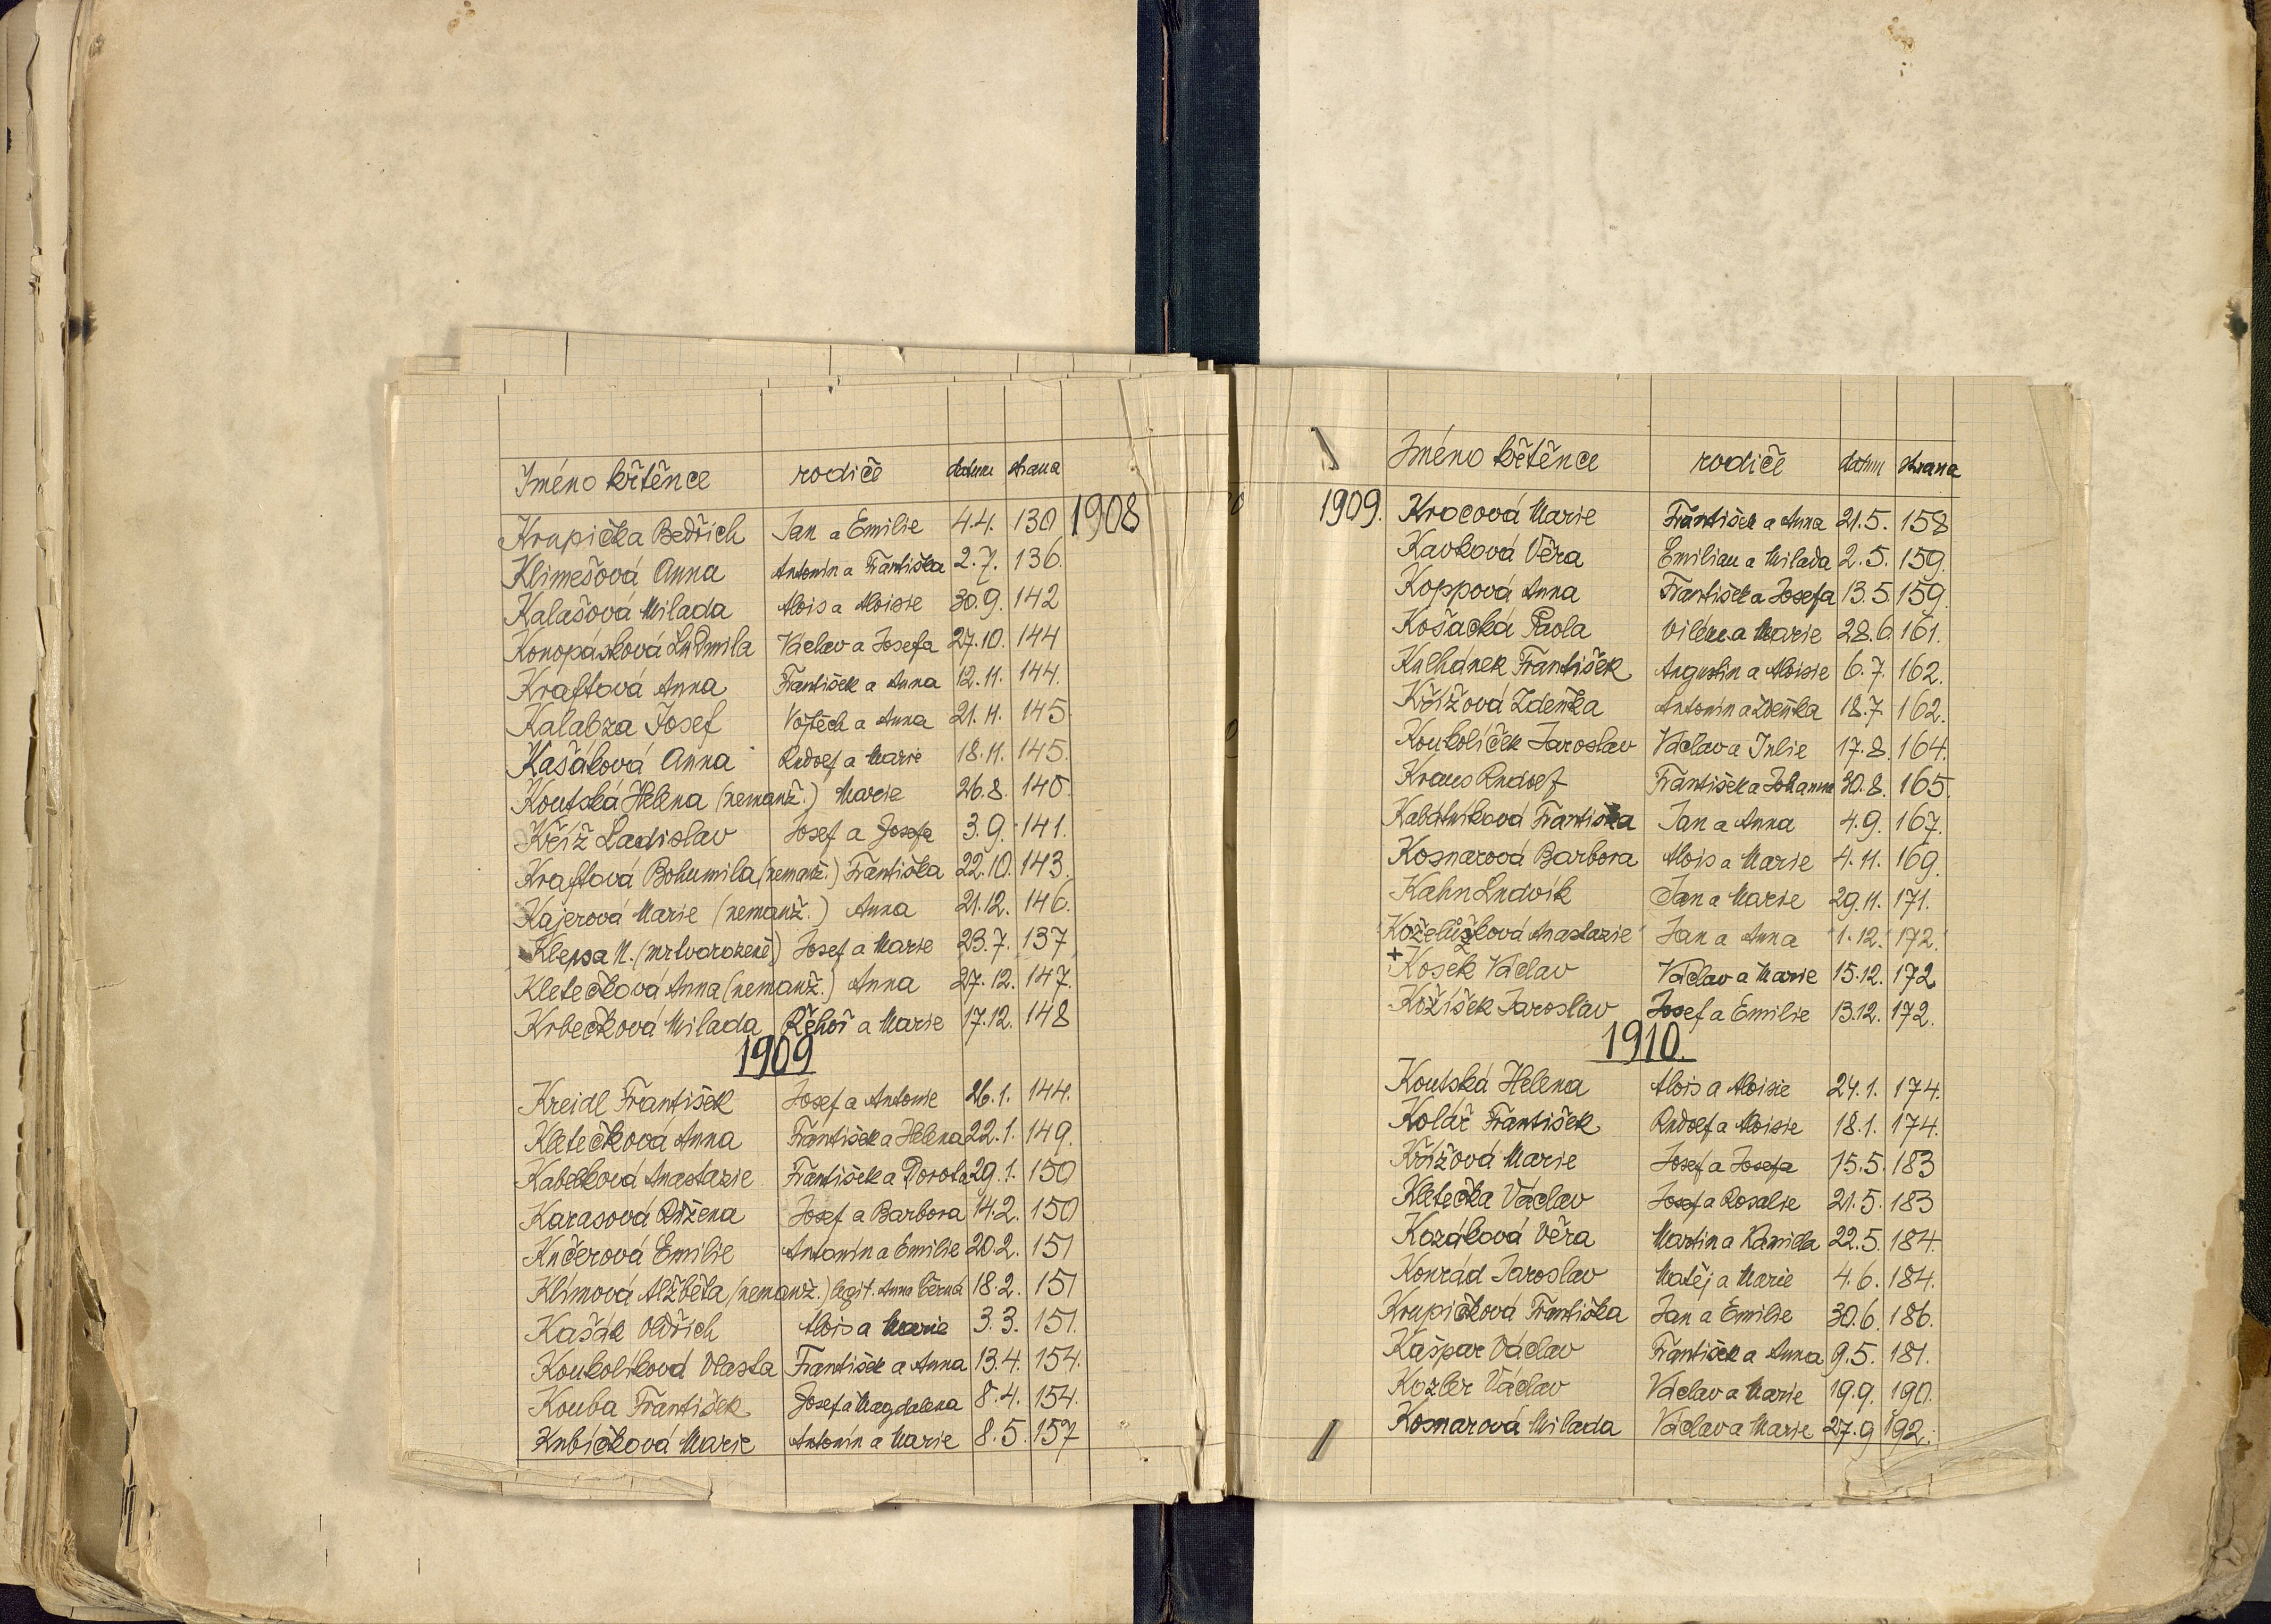 Jméno křtěnce rodiče datum strana
Krupička Bedřich Jan a Emilie 4.4. 130 1908
Klimešová Anna Antonín a Františka 2.7. 136.
Kalašová Milada Alois a Aloisie 30.9. 142
Konopásková Ludmila Václav a Josefa 27.10. 144
Kraftová Anna František a Anna 12.11. 144.
Kalabza Josef Vojtěch a Anna 21.11. 145.
Kašáková Anna Rudolf a Marie 18.11. 145.
Koutská Helena (nemanž.) Marie 26.8. 140.
Kříž Ladislav Josef a Josefa 3.9. 141.
Kraftová Bohumila (nemanž.) Františka 22.10. 143.
Kajerová Marie (nemanž.) Anna 21.12. 146.
Klepsa N. (mrtvorozené) Josef a Marie 23.7. 137
Kletečková Anna (nemanž.) Anna 27.12. 147.
Krbečková Milada Řehoř a Marie 17.12. 148
1909
Kreidl František Josef a Antonie 26.1. 144.
Kletečková Anna František a Helena 22.1. 149.
Kabelková Anastazie František a Dorota 29.1. 150
Karasová Růžena Josef a Barbora 14.2. 150
Kučerová Emilie Antonín a Emilie 20.2. 151
Klímová Alžběta (nemanž.) legit. Anna Černá 18.2. 151
Kašák Oldřich Alois a Marie 3.3. 151.
Koukolíková Vlasta František a Anna 13.4. 154.
Kouba František Josef a Magdalena 8.4. 154.
Kubíčková Marie Antonín a Marie 8.5. 157
Jméno křtěnce rodiče datum strana
1909. Krocová Marie František a Anna 21.5. 158
Kavková Věra Emilian a Milada 2.5. 159.
Koppová Anna František a Josefa 13.5. 159.
Košacká Paola Vilém a Marie 28.6. 161.
Kulhánek František Augustin a Aloisie 6.7. 162.
Křížová Zdeňka Antonín a Zdeňka 18.7. 162.
Koukolíček Jaroslav Václav a Julie 17.8. 164.
Kraus Rudolf František a Johanna 30.8. 165.
Kabátníková Františka Jan a Anna 4.9. 167.
Kosnarová Barbora Alois a Marie 4.11. 169.
Kahn Ludvík Jan a Marie 29.11. 171.
Koželůžková Anastazie Jan a Anna 1.12. 172.
+ Kosek Václav Václav a Marie 15.12. 172
Kožíšek Jaroslav Josef a Emilie 13.12. 172.
1910.
Koutská Helena Alois a Aloisie 24.1. 174.
Kolář František Rudolf a Aloisie 18.1. 174.
Křížová Marie Josef a Josefa 15.5. 183
Kletečka Václav Josef a Rosalie 21.5. 183
Kozáková Věra Martin a Kamila 22.5. 184.
Konrád Jaroslav Matěj a Marie 4.6. 184.
Krupičková Františka Jan a Emilie 30.6. 186.
Kašpar Václav František a Anna 9.5. 181.
Kozler Václav Václav a Marie 19.9. 190.
Kosnarová Milada Václav a Marie 27.9 192.